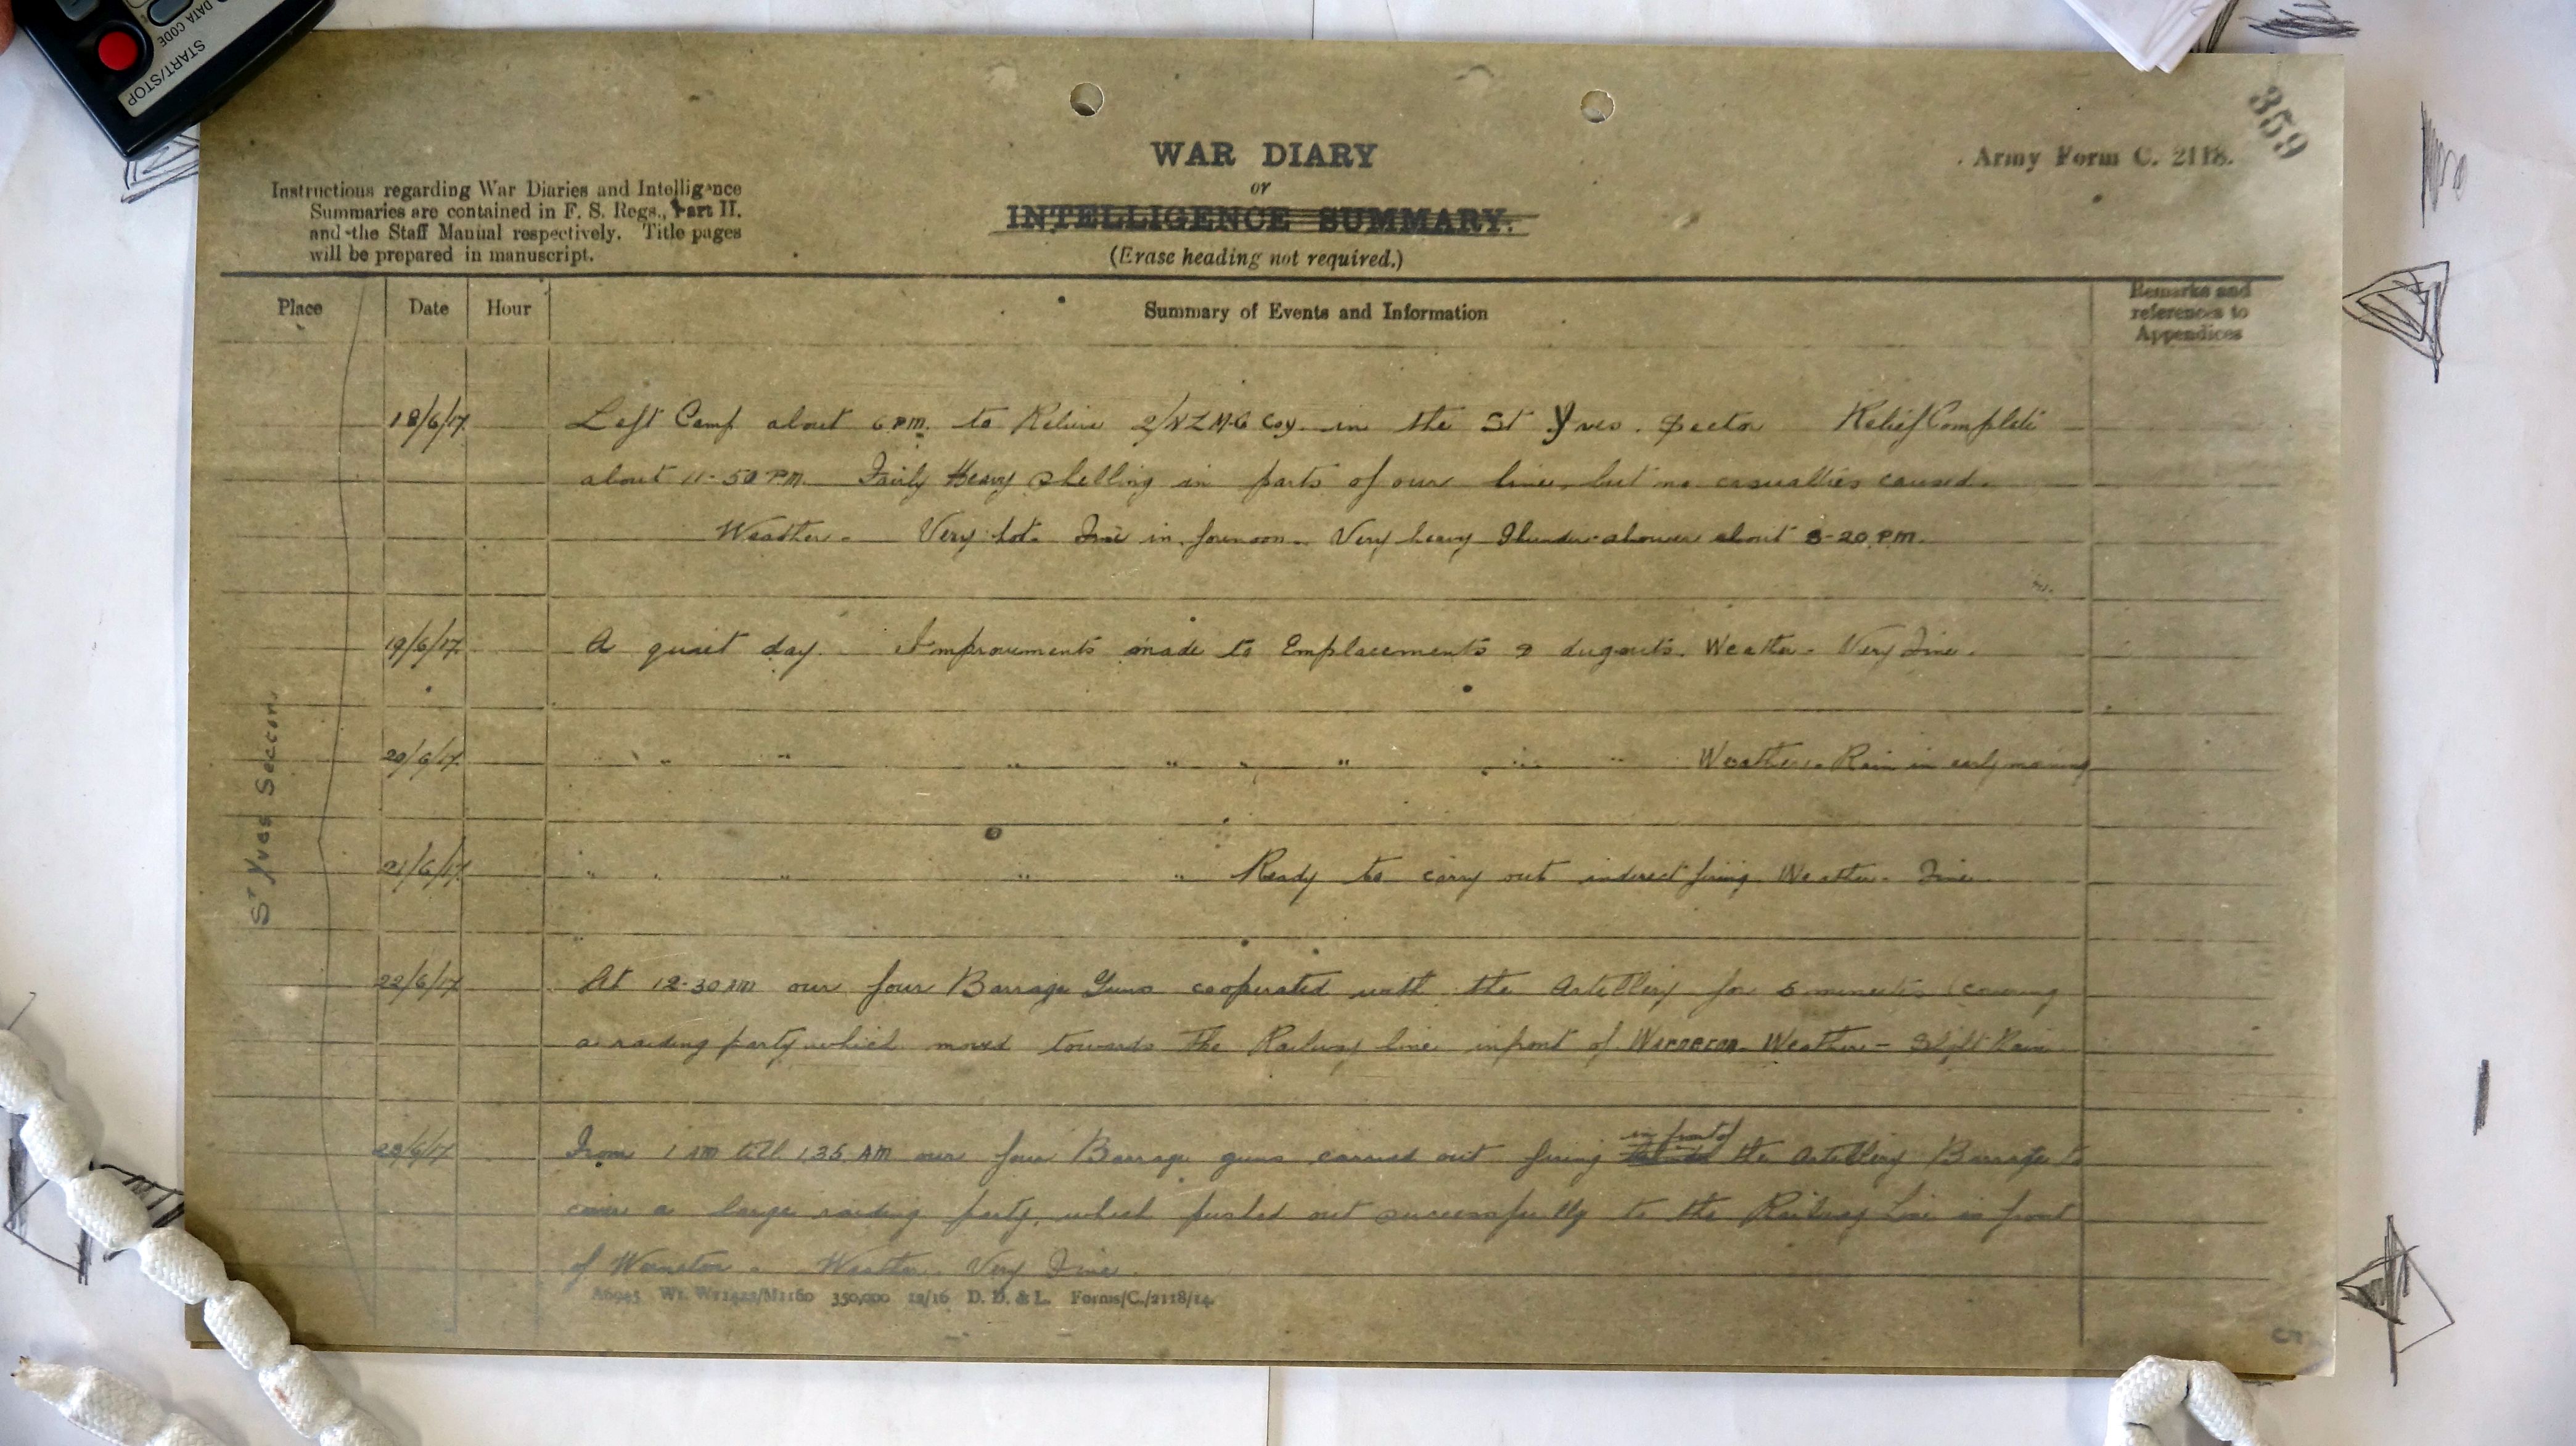 DATA CODE
START/STOP
359
WAR DIARY
or
INTELLIGENCE SUMMARY.
(Erase heading not required.)
Army Form C. 2118.
Instructions regarding War Diaries and Intelligence
Summaries are contained in F. S. Regs., Part II.
and the Staff Manual respectively. Title pages
will be prepared in manuscript.
Place Date Hour Summary of Events and Information Remarks and
references to
Appendices
St Yves Sector.
18/6/17 Left Camp about 6 PM. to Relieve 2/NZ M.G Coy. in the St Yves. Sector Relief Complete
about 11-50 PM. Fairly Heavy Shelling in parts of our line, but no casualties caused.
Weather. Very hot. Fine in forenoon. Very heavy Thunder-shower about 3-20 PM.
19/6/17 A quiet day. Improvements made to Emplacements & dugouts. Weather. Very Fine.
20/6/17 " " " " " " " " " Weather. Rain in early morning
21/6/17 " " " " " Ready to carry out indirect firing. Weather. Fine.
22/6/17 At 12-30 AM our four Barrage Guns cooperated with the Artillery for 5 minutes covering
a raiding party which moved towards the Railway line infront of Weather - Slight Rain
23/6/17 From 1 AM till 1.35 AM our four Barrage guns carried out firing in front of the Artillery Barrage to
cover a large raiding party, which pushed out successfully to the Railway Line in front
of Weather. Very Fine.
A6945 Wt. W11422/M1160 350,000 12/16 D. D. & L. Forms/C./2118/14.
5